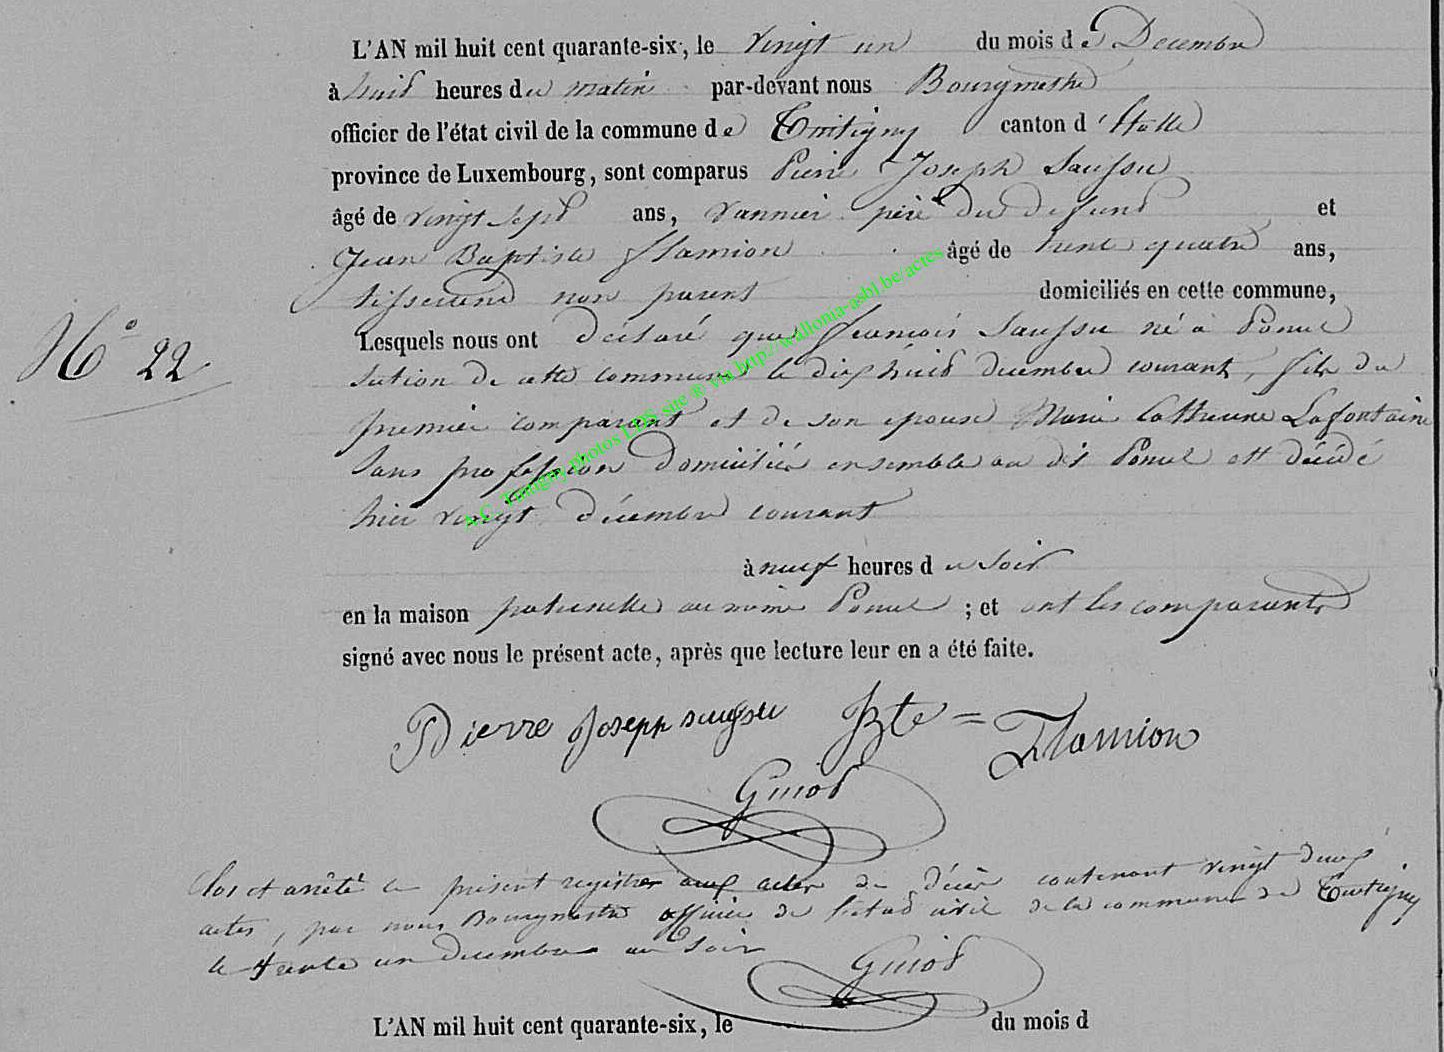 L'AN mil huit cent quarante-six, le vingt un du mois de Decembre
à huit heures du matin par-devant nous Bourgmestre
officier de l'état civil de la commune de Tintigny canton d'Etalle
province de Luxembourg, sont comparus Pierre Joseph Saussu
âgé de vingt sept ans, vannier père du defunt et
Jean Baptiste Flamion âgé de trente quatre ans,
tisserand non parent domiciliés en cette commune,
N° 22
Lesquels nous ont déclaré que François Saussu né à Ponsel
section de cette commune le dix huit decembre courant, fils du
premier comparant et de son epouse Marie Catherine Lafontaine
sans profession domiciliés ensemble au dit Ponsel est décédé
hier vingt décembre courant
à neuf heures du soir
en la maison paternelle au même Ponsel ; et ont les comparants
signé avec nous le présent acte, après que lecture leur en a été faite.
Pierre Joseph saussu Bte = Flamion
Guiot
Clos et arrêté le présent registre aux actes de décès contenant vingt deux
actes, par nous Bourgmestre officier de l'état civil de la commune de Tintigny
le trente un decembre au soir
Guiot
L'AN mil huit cent quarante-six, le du mois d
A.C. Tintigny photos LDS site ® via http://wallonia-asbl.be/actes